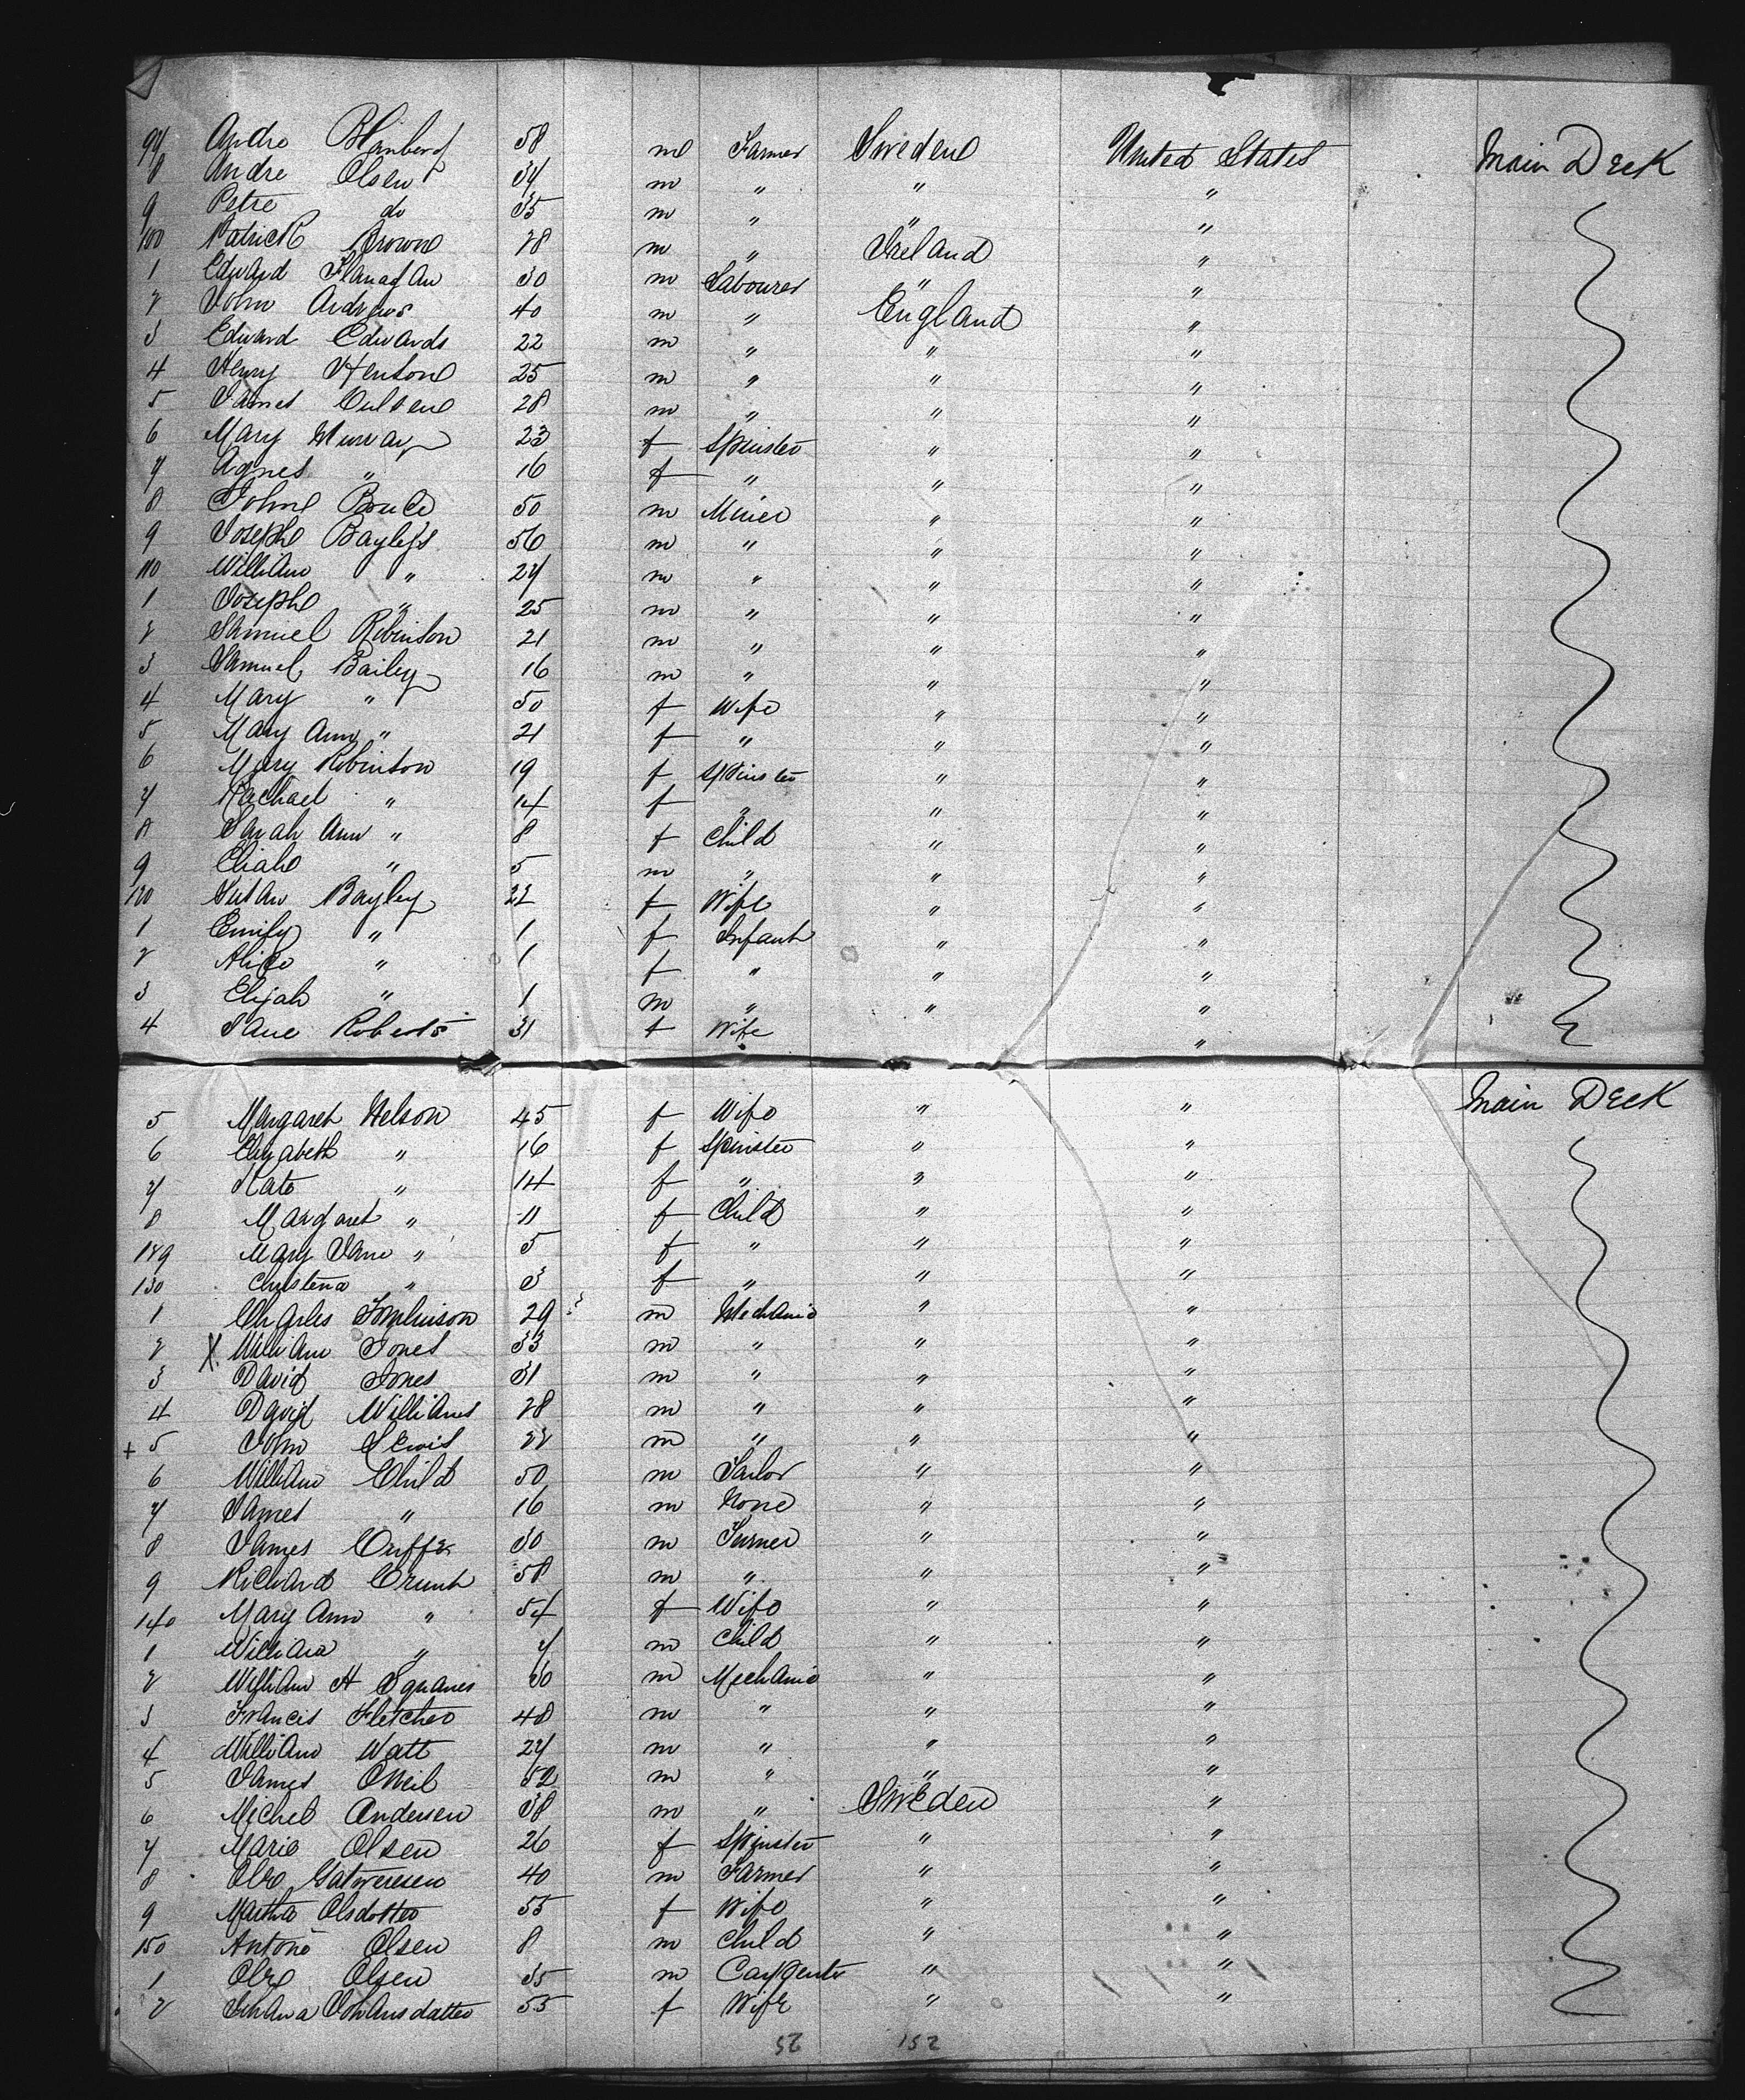 97 Andre 58 m Farmer Sweden United States Main Deck
8 Andre Olsen 34 m " " "
9 Petre do 35 m " " "
100 Patrick Browne 28 m " Ireland "
1 Edward Flanagan 30 m Labourer " "
2 John Andrews 40 m " England "
3 Edward Edwards 22 m " " "
4 Henry Henson 25 m " " "
5 James 28 m " " "
6 Mary Murray 23 f Spinster " "
7 Agnes " 16 f " " "
8 John Bruce 50 m Miner " "
9 Joseph Bayley 56 m " " "
110 William " 27 m " " "
1 Joseph " 25 m " " "
2 Samuel Robinson 21 m " " "
3 Samuel Bailey 16 m " " "
4 Mary " 50 f Wife " "
5 Mary Ann " 21 f " " "
6 Mary Robinson 19 f Spinster " "
7 Rachael " 14 f " " "
8 Sarah Ann " 8 f Child " "
9 " 5 m " " "
120 Susan Bayley 22 f Wife " "
1 Emily " 1 f Infant " "
2 Alice " 1 f " " "
3 Elijah " 1 m " " "
4 Jane Roberts 31 f Wife "
5 Margaret Nelson 45 f Wife " " Main Deck
6 Elizabeth " 16 f Spinster " "
7 Kate " 14 f " " "
8 Margaret " 11 f Child " "
129 Mary Jane " 5 f " " "
130 Christena " 3 f " " "
1 Charles Tomlinson 29 m Mechanic " "
2 X William Jones 33 m " " "
3 David Jones 31 m " " "
4 David Williams 28 m " " "
+ 5 John Lewis 22 m " " "
6 William Child 50 m Tailor " "
7 James " 16 m None " "
8 James Cuffe 30 m Turner " "
9 Richard 58 m " " "
140 Mary Ann " 54 f Wife " "
1 William " 7 m Child " "
2 William H Squares 30 m Mechanic " "
3 Francis Fletcher 48 m " " "
4 William Watt 27 m " " "
5 James ONeil 52 m " " "
6 Michel Andersen 38 m " Sweden "
7 Marie Olsen 26 f Spinster " "
8 Ole 40 m Farmer " "
9 Martha Olsdotter 55 f Wife " "
150 Antone Olsen 8 m Child " "
1 Ole Olsen 35 m Carpenter " "
2 Johansdatter 55 f Wife " "
52 152